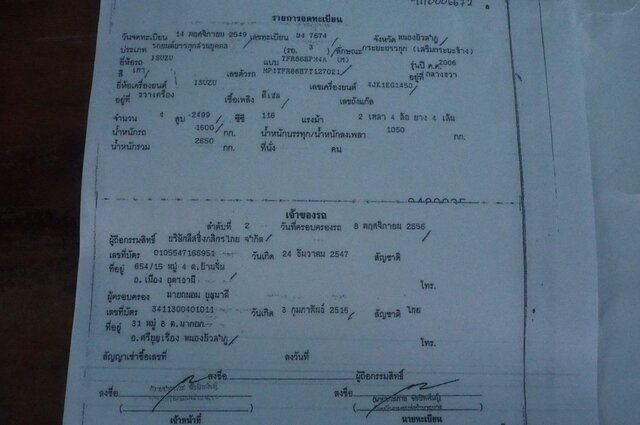 รายการจดทะเบียน
วันจดทะเบียน 14 พฤศจิกายน 2549 เลขทะเบียน 7674 จังหวัด หนองบัวลำภู
ประเภท รถยนต์บรรทุกส่วนบุคคล (รย. 3 ) ลักษณะ กระบะบรรทุก (เสริมกระบะข้าง)
ยี่ห้อรถ ISUZU แบบ (M) รุ่นปี ค.ศ. 2006
สี เทา เลขตัวรถ อยู่ที่ กลางขวา
ยี่ห้อเครื่องยนต์ ISUZU เลขเครื่องยนต์
อยู่ที่ ขวาเครื่อง เชื้อเพลิง ดีเซล เลขถังแก๊ส
จำนวน 4 สูบ 2499 ซีซี 116 แรงม้า 2 เพลา 4 ล้อ ยาง 4 เส้น
น้ำหนักรถ 1600 กก. น้ำหนักบรรทุก/น้ำหนักลงเพลา 1050 กก.
น้ำหนักรวม 2650 กก. ที่นั่ง คน
เจ้าของรถ
ลำดับที่ 2 วันที่ครอบครองรถ 8 พฤศจิกายน 2556
ผู้ถือกรรมสิทธิ์ บริษัทลีสซิ่งกสิกรไทย จำกัด
เลขที่บัตร 0105547166951 วันเกิด 24 ธันวาคม 2547 สัญชาติ
ที่อยู่ 654/15 หมู่ 4 ต.บ้านจั่น
อ.เมือง อุดรธานี โทร.
ผู้ครอบครอง นายถนอม
เลขที่บัตร 3411300401011 วันเกิด 3 กุมภาพันธ์ 2516 สัญชาติ ไทย
ที่อยู่ 31 หมู่ 8 ต.นากอก
อ.ศรีบุญเรือง หนองบัวลำภู โทร.
สัญญาเช่าซื้อเลขที่ ลงวันที่
ลงชื่อ ผู้ถือกรรมสิทธิ์
ลงชื่อ ลงชื่อ
เจ้าหน้าที่ นายทะเบียน